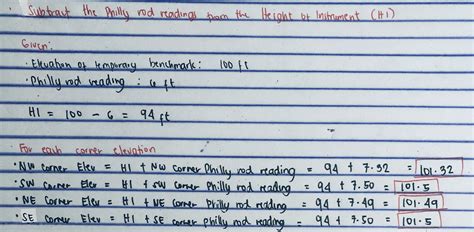 • Subtract the Philly rod readings from the Height of Instrument (HI)
Given:
• Elevation of temporary benchmark: 100 ft
• Philly rod reading: 6 ft
HI = 100 - 6 = 94 ft
• For each corner elevation
• NW corner Elev = HI + NW corner Philly rod reading = 94 + 7.32 = 101.32
• SW corner Elev = HI + SW corner Philly rod reading = 94 + 7.50 = 101.5
• NE corner Elev = HI + NE corner Philly rod reading = 94 + 7.49 = 101.49
• SE corner Elev = HI + SE corner Philly rod reading = 94 + 7.50 = 101.5